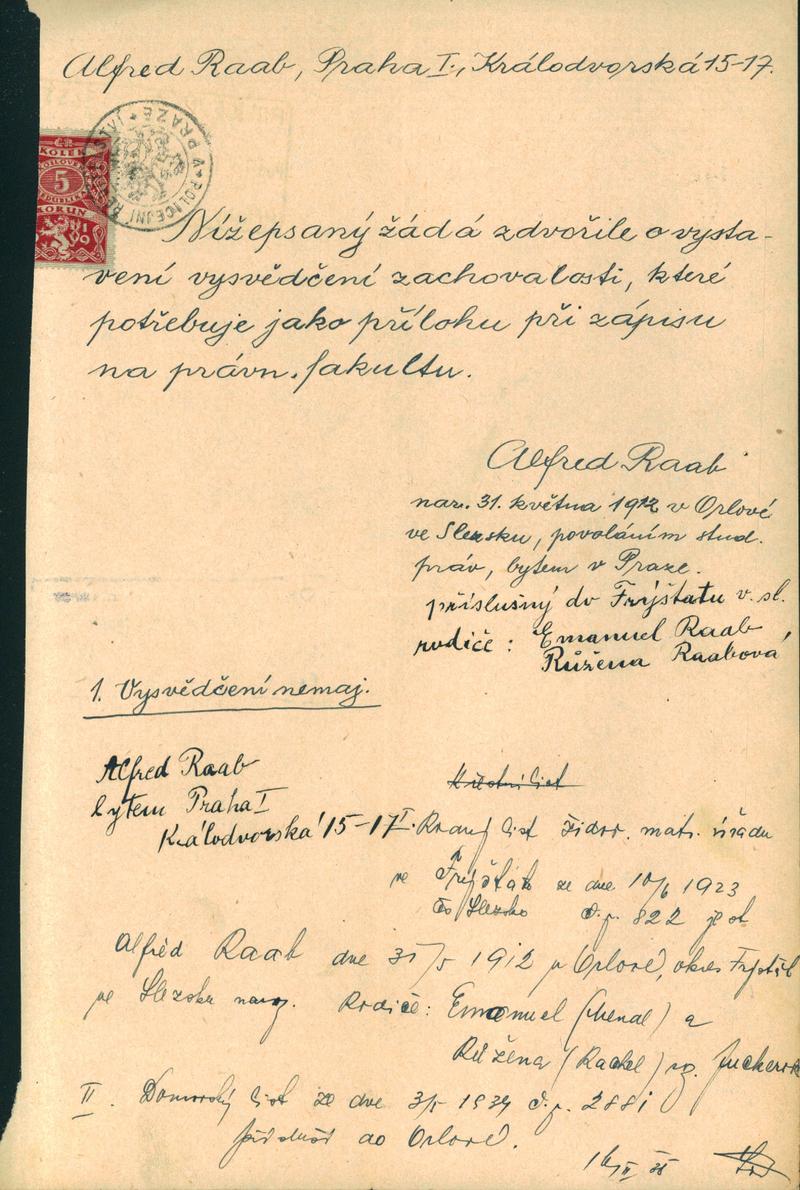 Alfred Raab, Praha I., Králodvorská 15-17.
KOLEK
5
KORUN
POLICEJNÍ ŘEDITELSTVÍ V PRAZE
Nížepsaný žádá zdvořile o vysta-
vení vysvědčení zachovalosti, které
potřebuje jako přílohu při zápisu
na právn. fakultu.
Alfred Raab
nar. 31. května 1912 v Orlové
ve Slezsku, povoláním stud.
práv, bytem v Praze.
příslušný do Frýštatu v. sl.
rodiče: Emanuel Raab
Růžena Raabová
1. Vysvědčení nemaj.
Alfred Raab
bytem Praha I
Králodvorská 15-17
Křestní list
I. Rodný list židov. matr. úřadu
ve Frýštatě ze dne 10/6 1923
Slezsko č.p. 822 jest
Alfréd Raab dne 31/5 1912 v Orlové, okres Frýštát
ve Slezsku naroz. Rodiče: Emanuel (Mendl) a
Růžena (Rachel) roz.
II. Domovský list ze dne 3/5 1934 č.p. 2881
přísluší do Orlové.